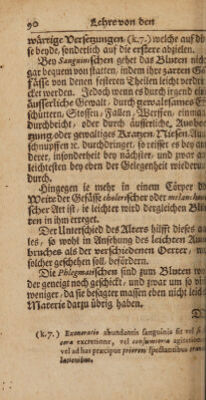 90 Lehre von den
wärtige Versetzungen (k. 7.) welche auf
se beyde, sonderlich auf die erstere abzielen.
Bey Sanguinischen gehet das Bluten nicht
gar bequem von statten, indem ihre zarten G
fässe von denen festeren Theilen leicht verder
cket werden. Jedoch wenn es durch irgend ein
äusserliche Gewalt, durch gewaltsames Er
schüttern, Stossen, Fallen, Werffen, einmahl
durchbricht, oder durch äusserliche,
zung oder gewaltiges Kratzen, Niesen, Au
schnupffen rc. durchdringet, so reisset es bey
derer, insonderheit bey nächster, und zwar a
leichtesten bey eben der Gelegenheit wieder
durch.
Hingegen ie mehr in einem Cörper d
Weite der Gefässe cholerischer oder melancho
scher Art ist, ie leichter wird dergleichen Blu
ten in ihm erreget.
Der Unterschied des Alters hilfft dieses
les, so wohl in Ansehung des leichten Au
bruches als der verschiedenen Oerter, wo
solcher geschehen soll, befördern.
Die Phlegmatischen sind zum Bluten
der geneigt noch geschickt, und zwar um so vi
weniger, da sie besagter massen eben nicht leicht
Materie darzu übrig haben.
D
(k. 7.) Exoneratio abundantis sanguinis fit vel
excretione, vel
vel ad hac præcipue priorem spectantibus trans
lationibus.